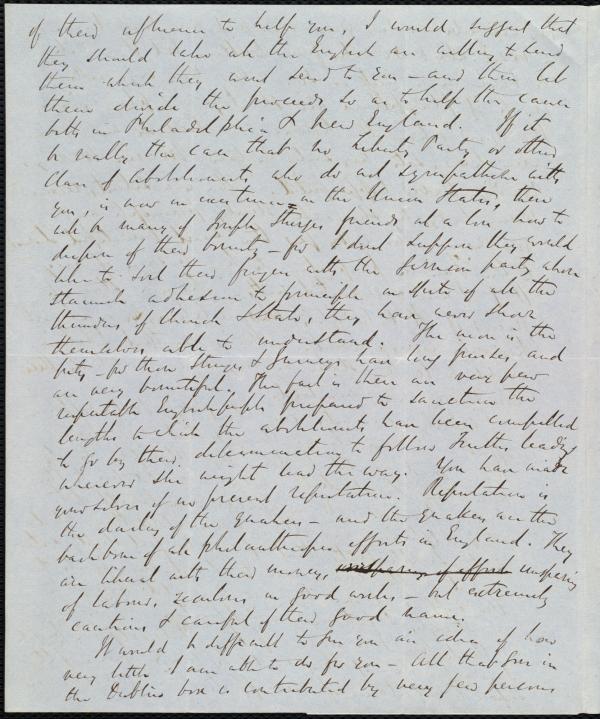 of their influence to help you, I would suggest that
they should take all the English are willing to send
them which they wont send to you - and then let
them divide the proceeds so as to help the cause
both in Philadelphia & New England. If it
be really the case that no Liberty Party or other
class of abolitionists who do not sympathise with
you, is now in existence in the Union States, there
will be many of Joseph Sturge's friends at a loss how to
dispose of their bounty - for I don't suppose they would
like to soil their fingers with the Garrison party whose
staunch adhesion to principle in spite of all the
thunders of Church & State, they have never shown
themselves able to understand. The more is the
pity - for these Sturges & Gurneys have long purses, and
are very bountiful. The fact is there are very few
reputable English people prepared to sanction the
lengths to which the abolitionists have been compelled
to go by their determination to follow Truth's leadings
wherever she might lead the way. You have made
yourselves of no present reputation. Reputation is
the darling of the Quakers - and the Quakers are the
backbone of all philanthropic efforts in England. They
are liberal with their money, unsparing
of labour, zealous in good works - but extremely
cautious & careful of their good name.
It would be difficult to give you an idea of how
very little I am able to do for you - All that goes in
the Dublin box is contributed by very few persons